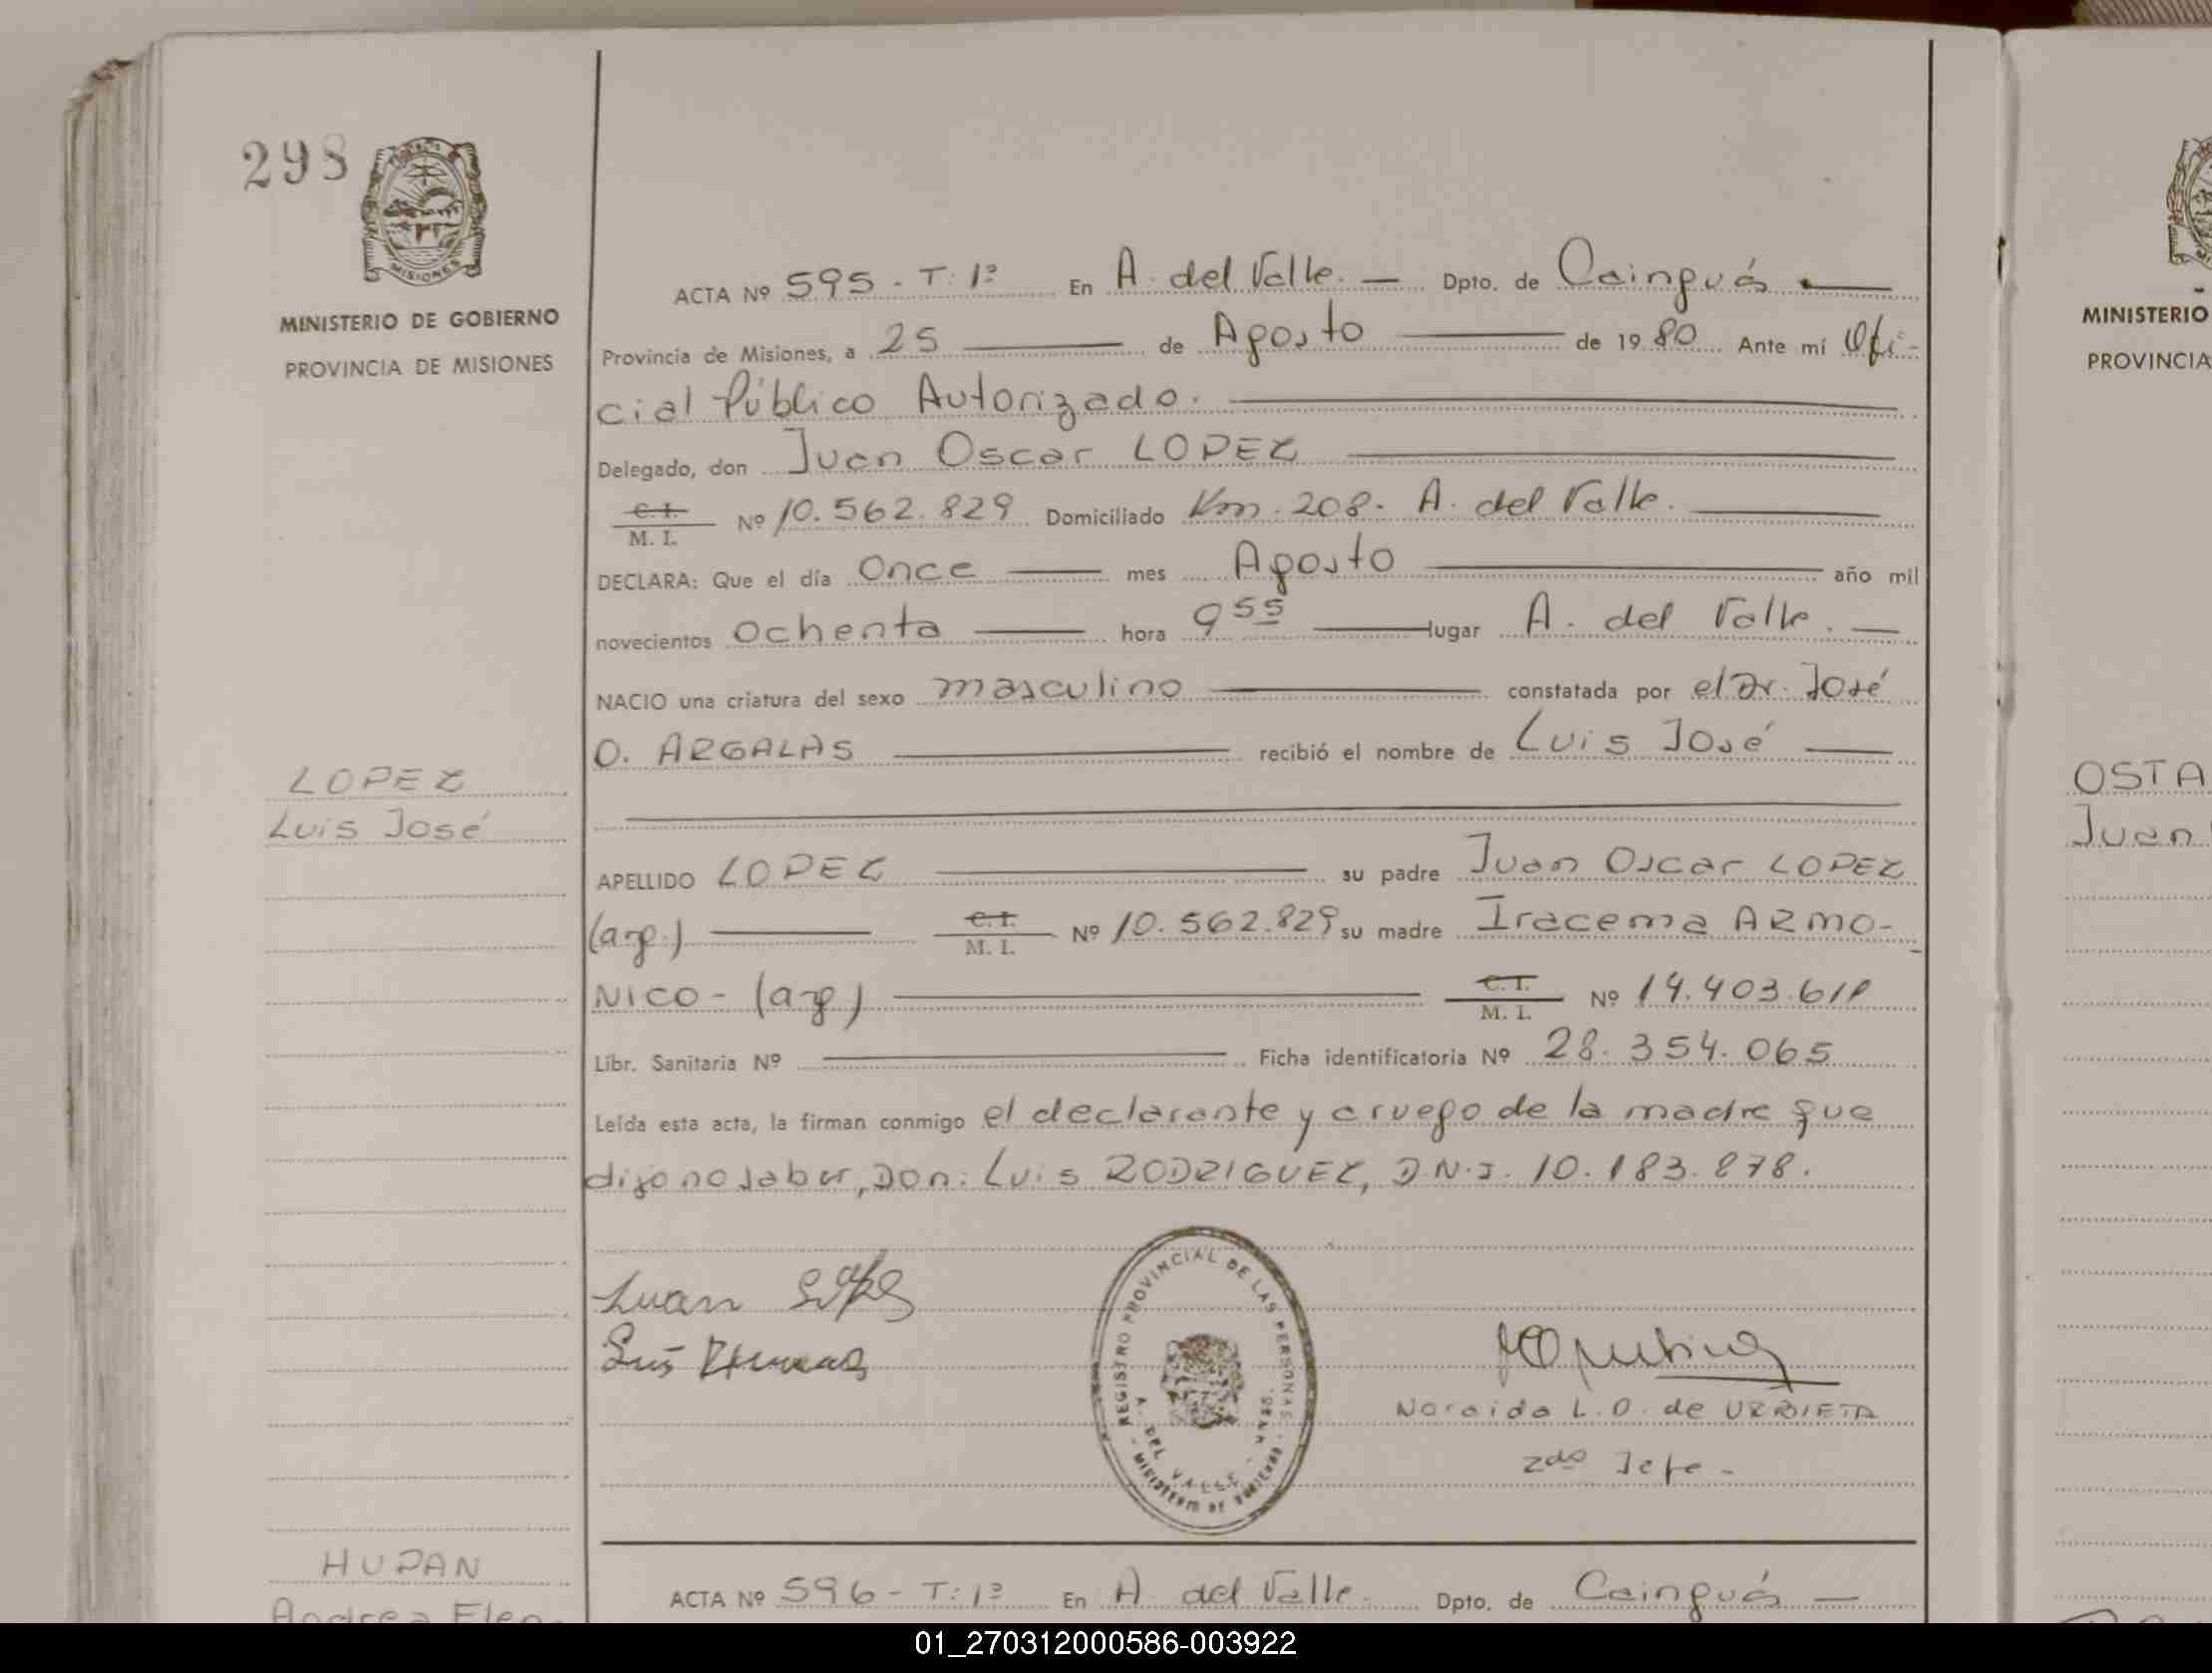 298
MISIONES
MINISTERIO DE GOBIERNO
PROVINCIA DE MISIONES
LOPEZ
Luis José
HUPAN
ACTA Nº 595 - T: 1º En A. del Valle. — Dpto. de Cainguás —
Provincia de Misiones, a 25 — de Agosto — de 1980 Ante mí Ofi-
cial Público Autorizado. —
Delegado, don Juan Oscar LOPEZ —
C. I.
M. I. Nº 10.562.829 Domiciliado Km. 208. A. del Valle. —
DECLARA: Que el día Once — mes Agosto — año mil
novecientos ochenta — hora 9 55 — lugar A. del Valle. —
NACIO una criatura del sexo masculino — constatada por el Dr. José
O. ARGALAS — recibió el nombre de Luis José —
APELLIDO LOPEZ — su padre Juan Oscar LOPEZ
(arg.) — C. I.
M. I. Nº 10.562.829 su madre Iracema ARMO-
NICO - (arg) — C. I.
M. I. Nº 14.403.611
Libr. Sanitaria Nº — Ficha identificatoria Nº 28.354.065
Leída esta acta, la firman conmigo el declarante y a ruego de la madre que
dijo no saber, Don: Luis RODRIGUEZ, D.N.I. 10.183.878.
Juan
REGISTRO PROVINCIAL DE LAS PERSONAS
A. DEL VALLE - MNES.
- MINISTERIO DE GOBIERNO -
Noraida L. O. de URBIETA
2do Jefe -
ACTA Nº 596 - T: 1º En A. del Valle. Dpto. de Cainguás —
MINISTERIO
PROVINCIA
OSTA
Juan
01_270312000586-003922